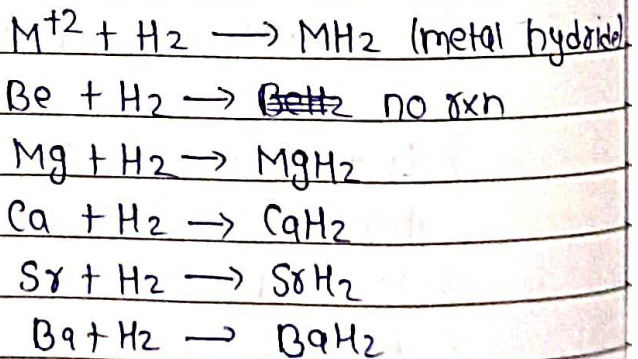 M+2 + H2 → MH2 (metal hydride)
Be + H2 → BeH2 no rxn
Mg + H2 → MgH2
Ca + H2 → CaH2
Sr + H2 → SrH2
Ba + H2 → BaH2